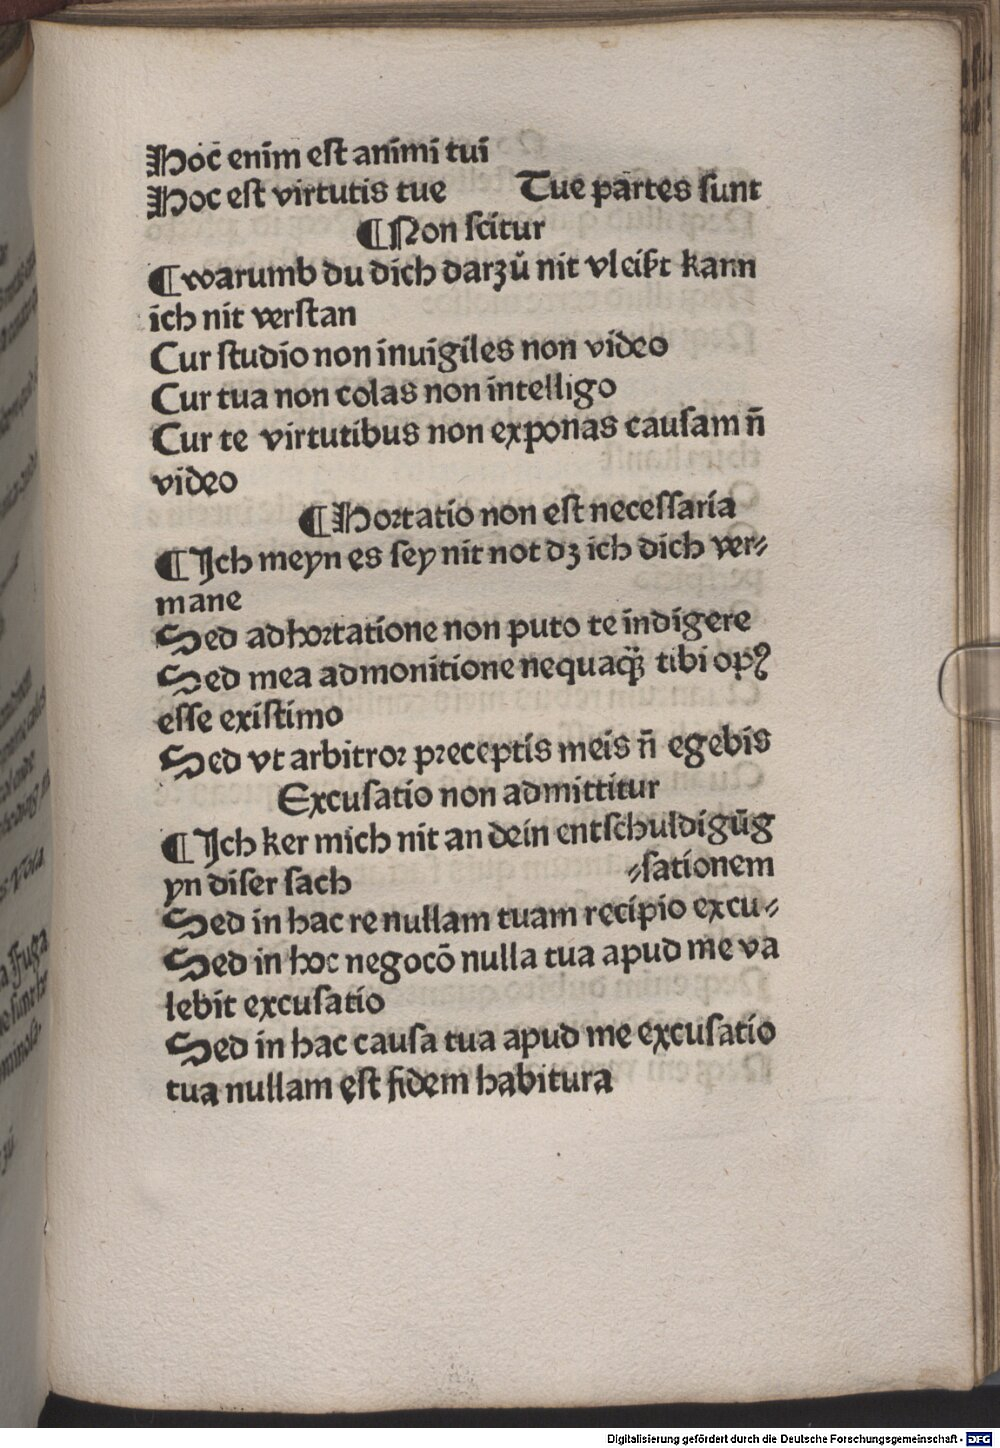 Hoc̄ enim eſt animi tui
Hoc eſt virtutis tue Tue partes ſunt
¶Non ſcitur
¶warumb du dich darzů nit vleiſzt kann
ich nit verſtan
Cur ſtudio non inuigiles non video
Cur tua non colas non intelligo
Cur te virtutibus non exponas cauſam n̄
video
¶Hortatio non eſt neceſſaria
¶Ich meyn es ſey nit not dʒ ich dich ver⸗
mane
Sed adhortatione non puto te indigere
Sed mea admonitione nequaq̈̄ tibi opꝰ
eſſe exiſtimo
Sed vt arbitror preceptis meis n̄ egebis
Excuſatio non admittitur
¶Ich ker mich nit an dein entſchuldigūg
yn diſer ſach ⸗ſationem
Sed in hac re nullam tuam recipio excu⸗
Sed in hoc negocō nulla tua apud me va
lebit excuſatio
Sed in hac cauſa tua apud me excuſatio
tua nullam eſt fidem habitura
Digitalisierung gefördert durch die Deutsche Forschungsgemeinschaft - DFG